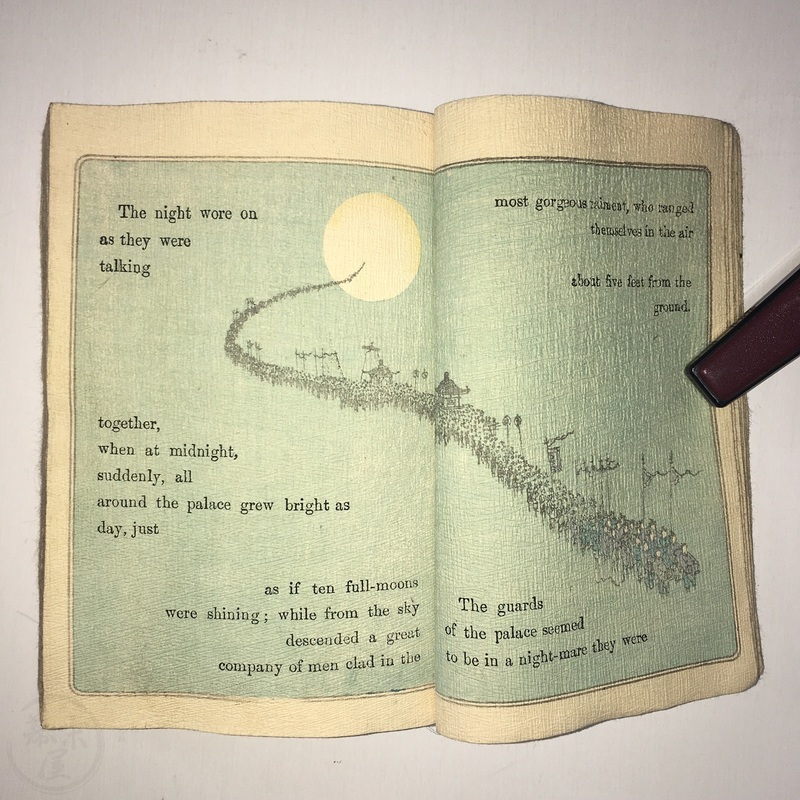 The night wore on
as they were
talking
together,
when at midnight,
suddenly, all
around the palace grew bright as
day, just
as if ten full-moons
were shining; while from the sky
descended a great
company of men clad in the
most gorgeous raiment, who ranged
themselves in the air
about five feet from the
ground.
The guards
of the palace seemed
to be in a night-mare they were